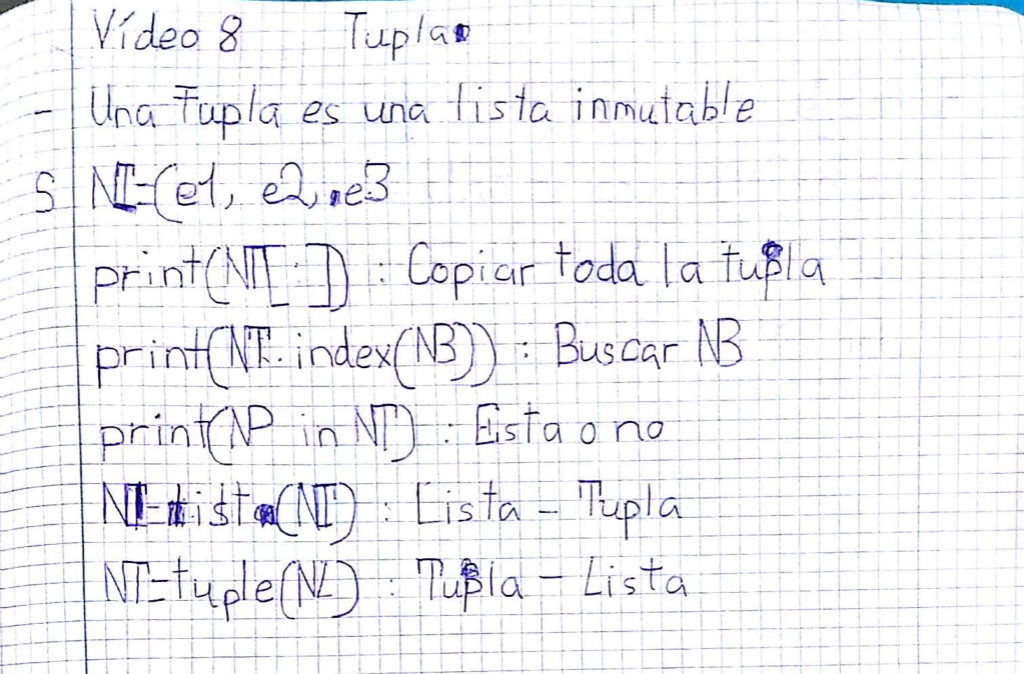 Vídeo 8 Tupla
- Una Tupla es una lista inmutable
S NT=(e1, e2, e3
print(NT[:]) : Copiar toda la tupla
print(NT.index(NB)) : Buscar NB
print(NP in NT) : Esta o no
(NT) : Lista - Tupla
NT=tuple(NL) : Tupla - Lista